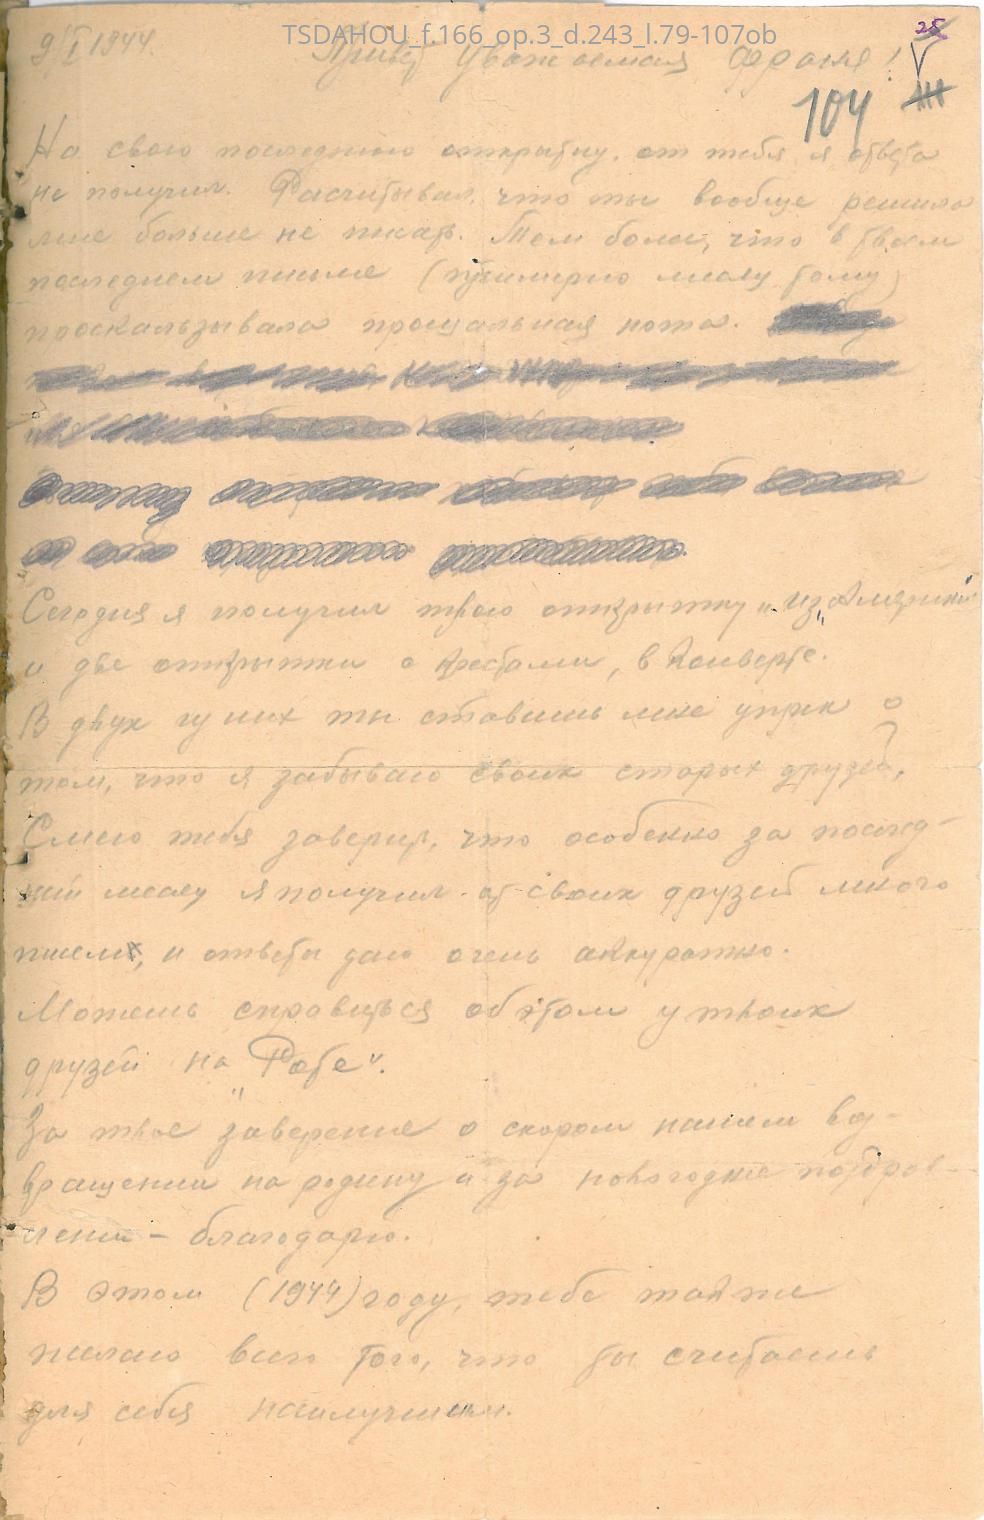 TSDAHOU_f.166_op.3_d.243_l.79-107ob
25
9/I 1944. Привет Уважаемая Франя!
104
На свою последнюю открытку, от тебя я ответа
не получил. Расчитывал, что ты вообще решила
мне больше не писать. Тем более, что в твоем
последнем письме (примерно месяц тому)
проскальзывала прощальная нота.
Сегодня я получил твою открытку „из Америки"
и две открытки с крестами, в конверте.
В двух из них ты ставишь мне упрек о
том, что я забываю своих старых друзей,
Смею тебя заверить, что особенно за послед-
ний месяц я получил от своих друзей много
писем, и ответы даю очень аккуратно.
Можешь справиться об этом у твоих
друзей на „Рабе".
За твое заверение о скором нашем воз-
вращении на родину и за новогодние поздрав-
ления – благодарю.
В этом (1944) году, тебе также
желаю всего того, что ты считаешь
для себя наилучшим.